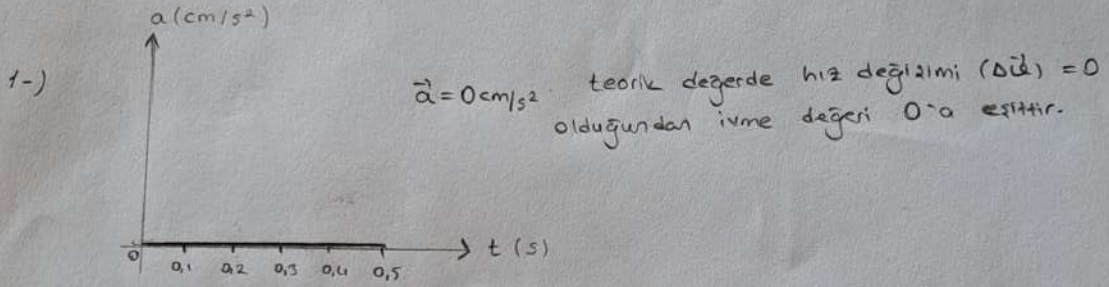 a (cm/s²)
1-)
a⃗ = 0 cm/s² teorik değerde hız değişimi (Δϑ⃗) = 0
olduğundan ivme değeri 0'a eşittir.
0 0,1 0,2 0,3 0,4 0,5 t (s)